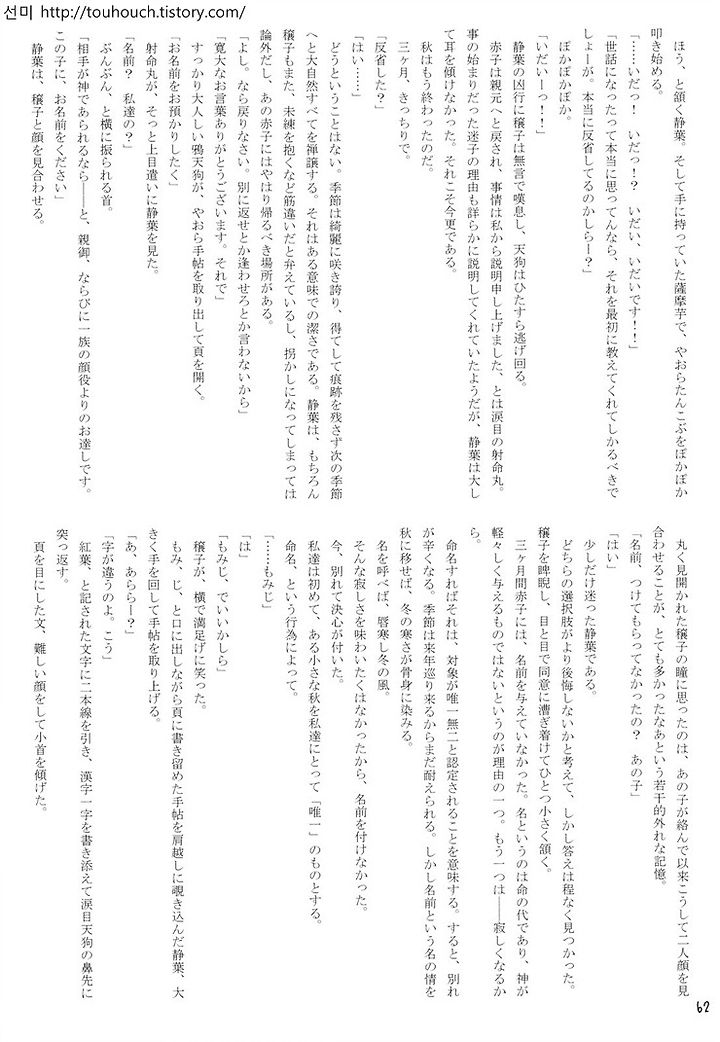 선미 http://touhouch.tistory.com/
ほう、と頷く静葉。そして手に持っていた薩摩芋で、やおらたんこぶをぽかぽか
叩き始める。
「……いだっ! いだっ!? いだい、いだいです!!」
「世話になったって本当に思ってんなら、それを最初に教えてくれてしかるべきで
しょーが。本当に反省してるのかしらー?」
ぽかぽかぽか。
「いだいーっ!!!」
静葉の凶行に穣子は無言で嘆息し、天狗はひたすら逃げ回る。
赤子は親元へと戻され、事情は私から説明申し上げました、とは涙目の射命丸。
事の始まりだった迷子の理由も詳らかに説明してくれていたようだが、静葉は大し
て耳を傾けなかった。それこそ今更である。
秋はもう終わったのだ。
三ヶ月、きっちりで。
「反省した?」
「はい……」
どうということはない。季節は綺麗に咲き誇り、得てして痕跡を残さず次の季節
へと大自然すべてを禅譲する。それはある意味での潔さである。静葉は、もちろん
穣子もまた、未練を抱くなど筋違いだと弁えているし、拐かしになってしまっては
論外だし、あの赤子にはやはり帰るべき場所がある。
「よし。なら戻りなさい。別に返せとか逢わせろとか言わないから」
「寛大なお言葉ありがとうございます。それで」
すっかり大人しい鴉天狗が、やおら手帖を取り出して頁を開く。
「お名前をお預かりしたく」
射命丸が、そっと上目遣いに静葉を見た。
「名前? 私達の?」
ぶんぶん、と横に振られる首。
「相手が神であられるなら――と、親御、ならびに一族の顔役よりのお達しです。
この子に、お名前をください」
静葉は、穣子と顔を見合わせる。
丸く見開かれた穣子の瞳に思ったのは、あの子が絡んで以来こうして二人顔を見
合わせることが、とても多かったなあという若干的外れな記憶。
「名前、つけてもらってなかったの? あの子」
「はい」
少しだけ迷った静葉である。
どちらの選択肢がより後悔しないかと考えて、しかし答えは程なく見つかった。
穣子を睥睨し、目と目で同意に漕ぎ着けてひとつ小さく頷く。
三ヶ月間赤子には、名前を与えていなかった。名というのは命の代であり、神が
軽々しく与えるものではないというのが理由の一つ。もう一つは――寂しくなるか
ら。
命名すればそれは、対象が唯一無二と認定されることを意味する。すると、別れ
が辛くなる。季節は来年巡り来るからまだ耐えられる。しかし名前という名の情を
秋に移せば、冬の寒さが骨身に染みる。
名を呼べば、唇寒し冬の風。
そんな寂しさを味わいたくはなかったから、名前を付けなかった。
今、別れて決心が付いた。
私達は初めて、ある小さな秋を私達にとって「唯一」のものとする。
命名、という行為によって。
「……もみじ」
「は」
「もみじ、でいいかしら」
穣子が、横で満足げに笑った。
もみ、じ、と口に出しながら頁に書き留めた手帖を肩越しに覗き込んだ静葉、大
きく手を回して手帖を取り上げる。
「あ、あららー?」
「字が違うのよ。こう」
紅葉、と記された文字に二本線を引き、漢字一字を書き添えて涙目天狗の鼻先に
突っ返す。
頁を目にした文、難しい顔をして小首を傾げた。
62